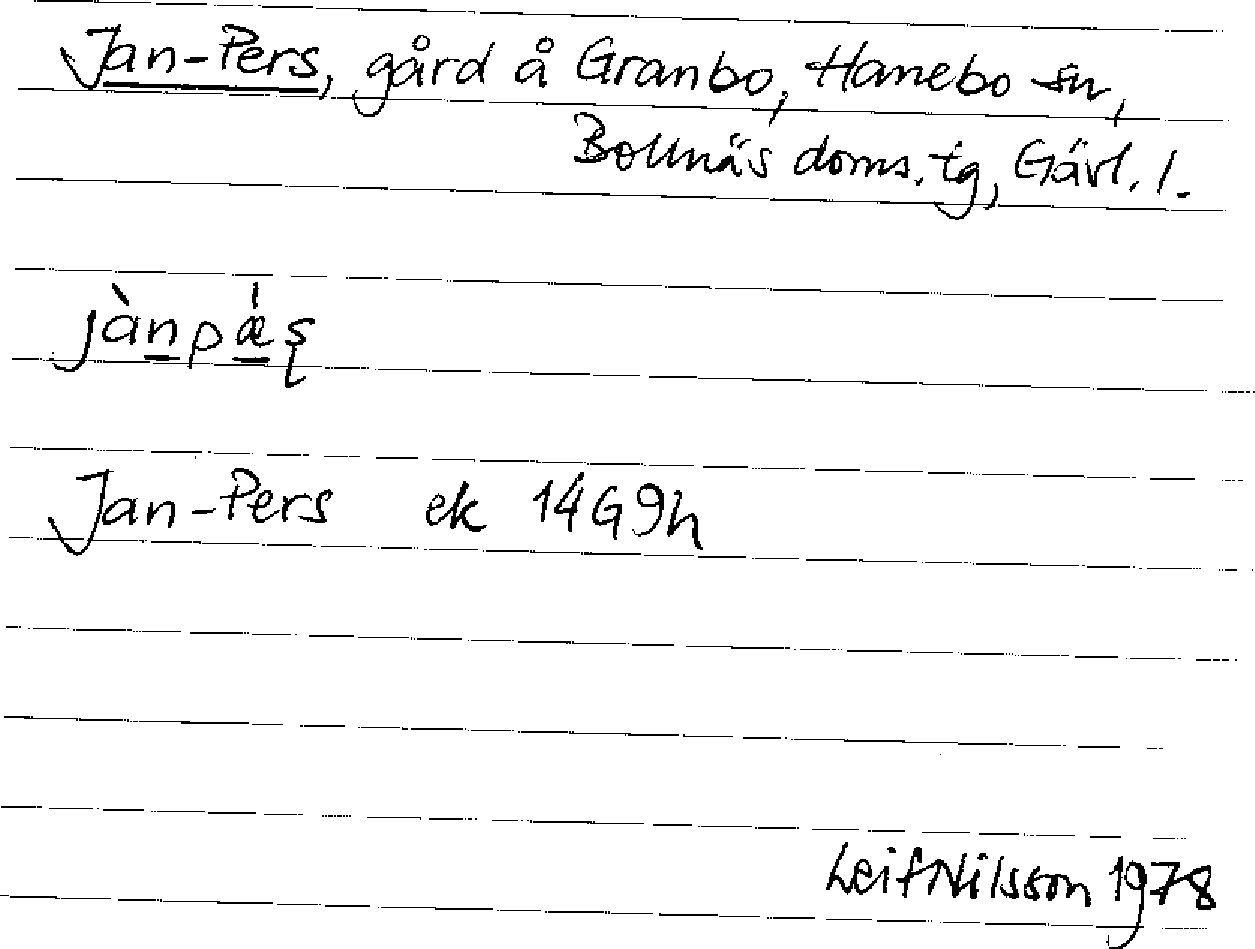 Jan-Pers, gård å Granbo, Hanebo sn,
Bollnäs doms. tg, Gävl. l.
jànpǽʂ
Jan-Pers ek 14G9h
Leif Nilsson 1978